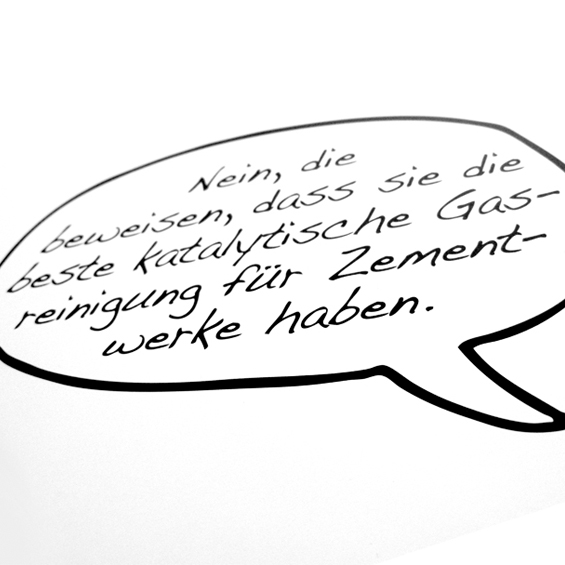 Nein, die
beweisen, dass sie die
beste katalytische Gas-
reinigung für Zement-
werke haben.